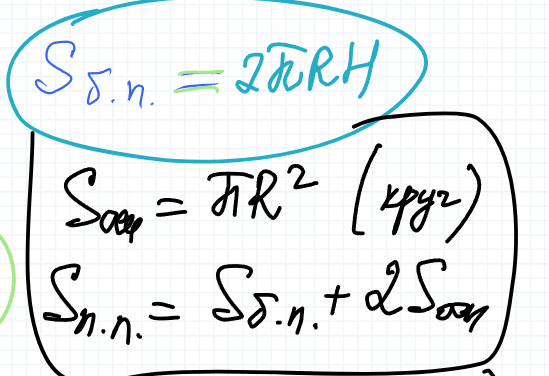 Sб.п. = 2πRH
Sосн = πR² (круг)
Sп.п. = Sб.п. + 2Sосн